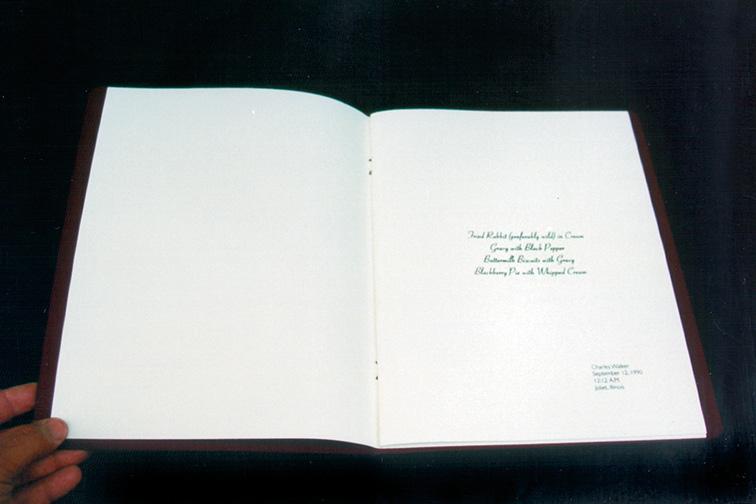 Fried Rabbit (preferably wild) in Cream
Gravy with Black Pepper
Buttermilk Biscuits with Gravy
Blackberry Pie with Whipped Cream
Charles Walker
September 12, 1990
12:12 A.M.
Joliet, Illinois